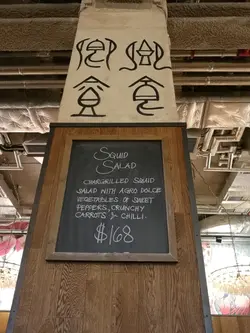 SQUID
SALAD
CHARGRILLED SQUID
SALAD WITH AGRO DOLCE
VEGETABLES OF SWEET
PEPPERS, CRUNCHY
CARROTS & CHILLI.
$168